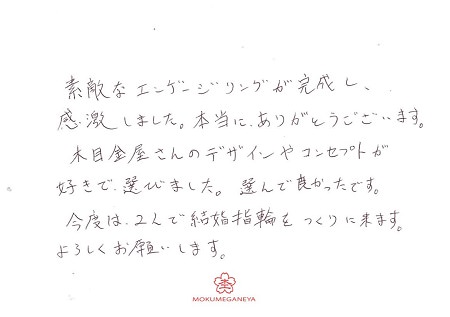 素敵なエンゲージリングが完成し、
感激しました。本当に、ありがとうございます。
木目金屋さんのデザインやコンセプトが
好きで、選びました。選んで良かったです。
今度は、2人で結婚指輪をつくりに来ます。
よろしくお願いします。
MOKUMEGANEYA